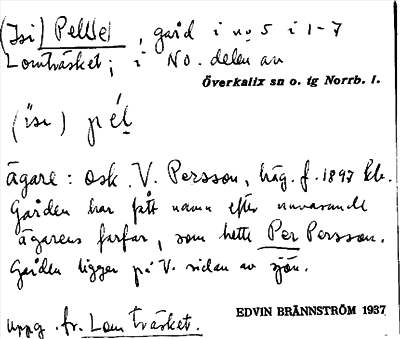 (Isi) Pellel, gård i no 5 i 1-7
Lomträsket; i No. delen av
Överkalix sn o. tg Norrb. l.
(ísi) pél
ägare: Osk. V. Persson, häg. f. 1897 kb.
Gården har fått namn efter nuvarande
ägarens farfar, som hette Per Persson.
Gården ligger på V. sidan av sjön.
uppg. fr. Lomträsket.
EDVIN BRÄNNSTRÖM 1937